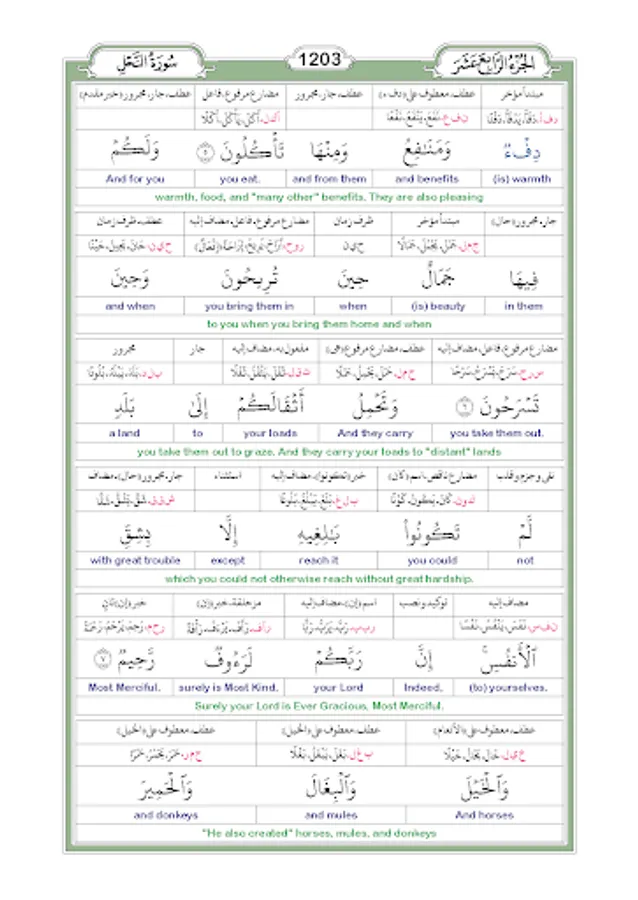 الجزء الرابع عشر 1203 سورة النحل
مبتدأ مؤخر عطف، معطوف على (دفء) عطف، جار، مجرور مضارع مرفوع، فاعل عطف، جار، مجرور (خبر مقدم)
دِفْءٌ وَمَنَافِعُ وَمِنْهَا تَأْكُلُونَ ٥ وَلَكُمْ
(is) warmth and benefits and from them you eat. And for you
warmth, food, and "many other" benefits. They are also pleasing
جار، مجرور (حال) مبتدأ مؤخر ظرف زمان مضارع مرفوع، فاعل، مضاف إليه عطف، ظرف زمان
فِيهَا جَمَالٌ حِينَ تُرِيحُونَ وَحِينَ
in them (is) beauty when you bring them in and when
to you when you bring them home and when
مضارع مرفوع، فاعل، مضاف إليه عطف، مضارع مرفوع (هي) مفعول به، مضاف إليه جار مجرور
تَسْرَحُونَ ٦ وَتَحْمِلُ أَثْقَالَكُمْ إِلَىٰ بَلَدٍ
you take them out. And they carry your loads to a land
you take them out to graze. And they carry your loads to "distant" lands
نفي وجزم وقلب مضارع ناقص، اسم (كان) خبر (تكونوا)، مضاف إليه استثناء جار، مجرور (حال)، مضاف
لَّمْ تَكُونُوا۟ بَـٰلِغِيهِ إِلَّا بِشِقِّ
not you could reach it except with great trouble
which you could not otherwise reach without great hardship.
مضاف إليه توكيد ونصب اسم (إن)، مضاف إليه مزحلقة، خبر (إن) خبر (إن) ثان
ٱلْأَنفُسِ ۚ إِنَّ رَبَّكُمْ لَرَءُوفٌ رَّحِيمٌ ٧
(to) yourselves. Indeed, your Lord surely is Most Kind, Most Merciful.
Surely your Lord is Ever Gracious, Most Merciful.
عطف، معطوف على (الأنعام) عطف، معطوف على (الخيل) عطف، معطوف على (الخيل)
وَٱلْخَيْلَ وَٱلْبِغَالَ وَٱلْحَمِيرَ
And horses and mules and donkeys
"He also created" horses, mules, and donkeys